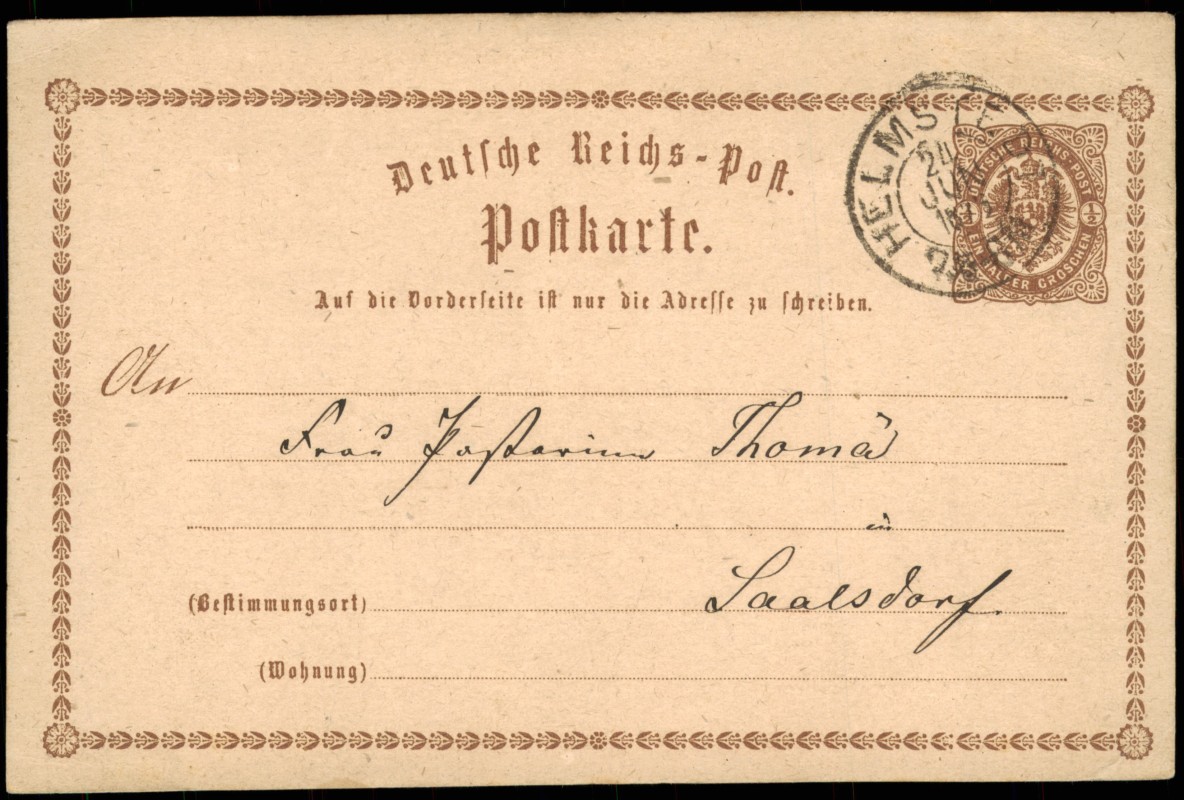 Deutsche Reichs-Post.
Postkarte.
Auf die Vorderseite ist nur die Adresse zu schreiben.
HELMSTE
24
DEUTSCHE REICHS-POST
½ ½
EIN HALBER GROSCHEN
An
Frau Pastorinn Thomä
in
(Bestimmungsort) Saalsdorf.
(Wohnung)